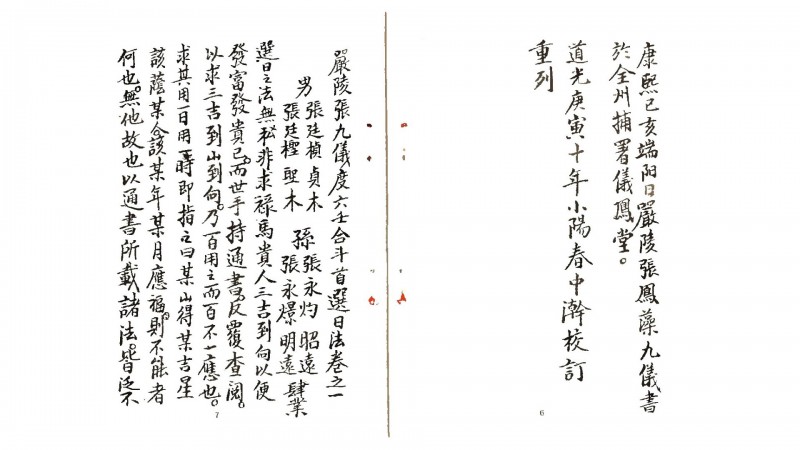 康熙己亥端陽日嚴陵張鳳藻九儀書
於全州捕署儀鳳堂。
道光庚寅十年小陽春中澣校訂
重列
6
嚴陵張九儀度六壬合斗首選日法卷之一
男 張廷楨貞木 孫 張永灼昭遠
張廷樫聖木 張永爆明遠 肄業
選日之法無私非求祿馬貴人三吉到向以便
發富發貴已。而世手持通書。反覆查閱。
以求三吉到山到向。乃百用之而百不一應也。
求其用一日用一時即指之曰某山得某吉星
該蔭某命該某年某月應福。則不能者
何也。無他故也以通書所載諸法。皆泛不
7